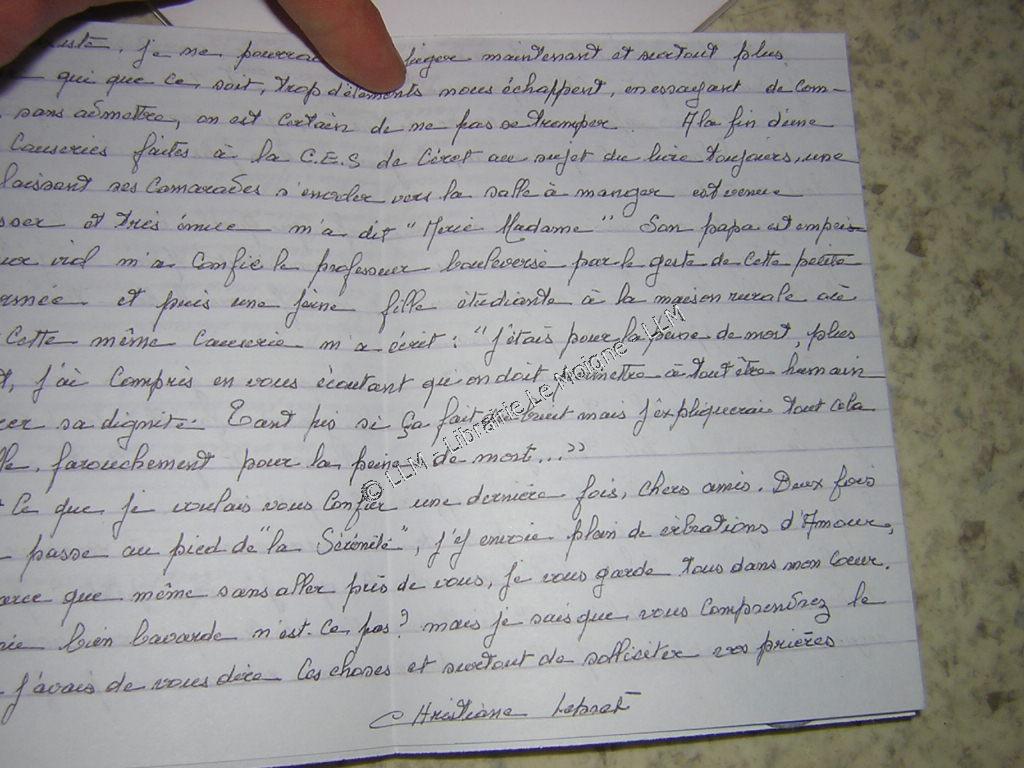 je ne juger maintenant et surtout plus
qui que ce soit, trop d'éléments nous échappent, en essayant de com-
sans admettre, on est certain de ne pas se tromper. A la fin d'une
Causeries faites à la C.E.S de Céret au sujet du livre toujours, une
laissant ses Camarades s'envoler vers la salle à manger est venue
et très émue m'a dit "Merci Madame" Son papa est empri-
viol m'a Confié le professeur bouleversé par le geste de Cette petite
et puis une jeune fille étudiante à la maison rurale où
Cette même Causerie m'a écrit : "J'étais pour la peine de mort, plus
j'ai Compris en vous écoutant qu'on doit permettre à tout être humain
sa dignité. Tant pis si Ça fait mais j'expliquerai tout cela
farouchement pour la peine de mort..."
Ce que je voulais vous Confier une dernière fois, chers amis. Deux fois
passe au pied de "la Sérénité", j'y envoie plein de vibrations d'Amour,
que même sans aller près de vous, je vous garde tous dans mon Coeur.
bien bavarde n'est-Ce pas? mais je sais que vous Comprendrez le
j'avais de vous dire Ces choses et surtout de solliciter vos prières
Christiane
© LLM - Librairie Le Moigne - LLM